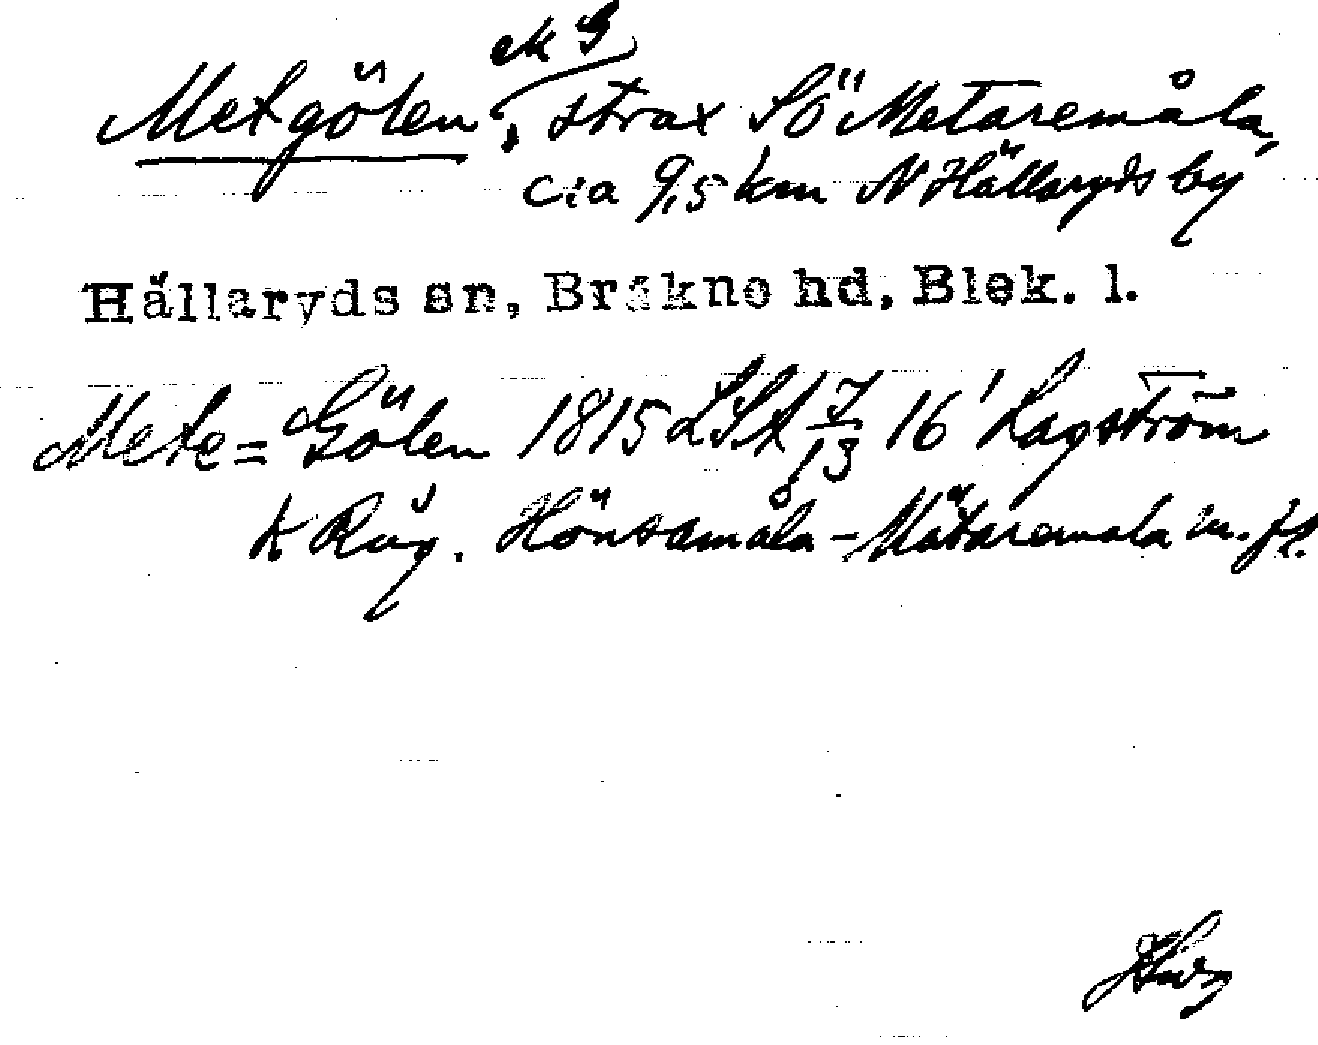 Metgölen, strax SÖ Metaremåla,
c:a 9,5 km N Hällaryds by
Hällaryds sn, Bräkne hd, Blek. l.
Mete=Gölen 1815 LSA 16' Lagström
K Råg. Hönsamåla-Mätaremåla m. fl.